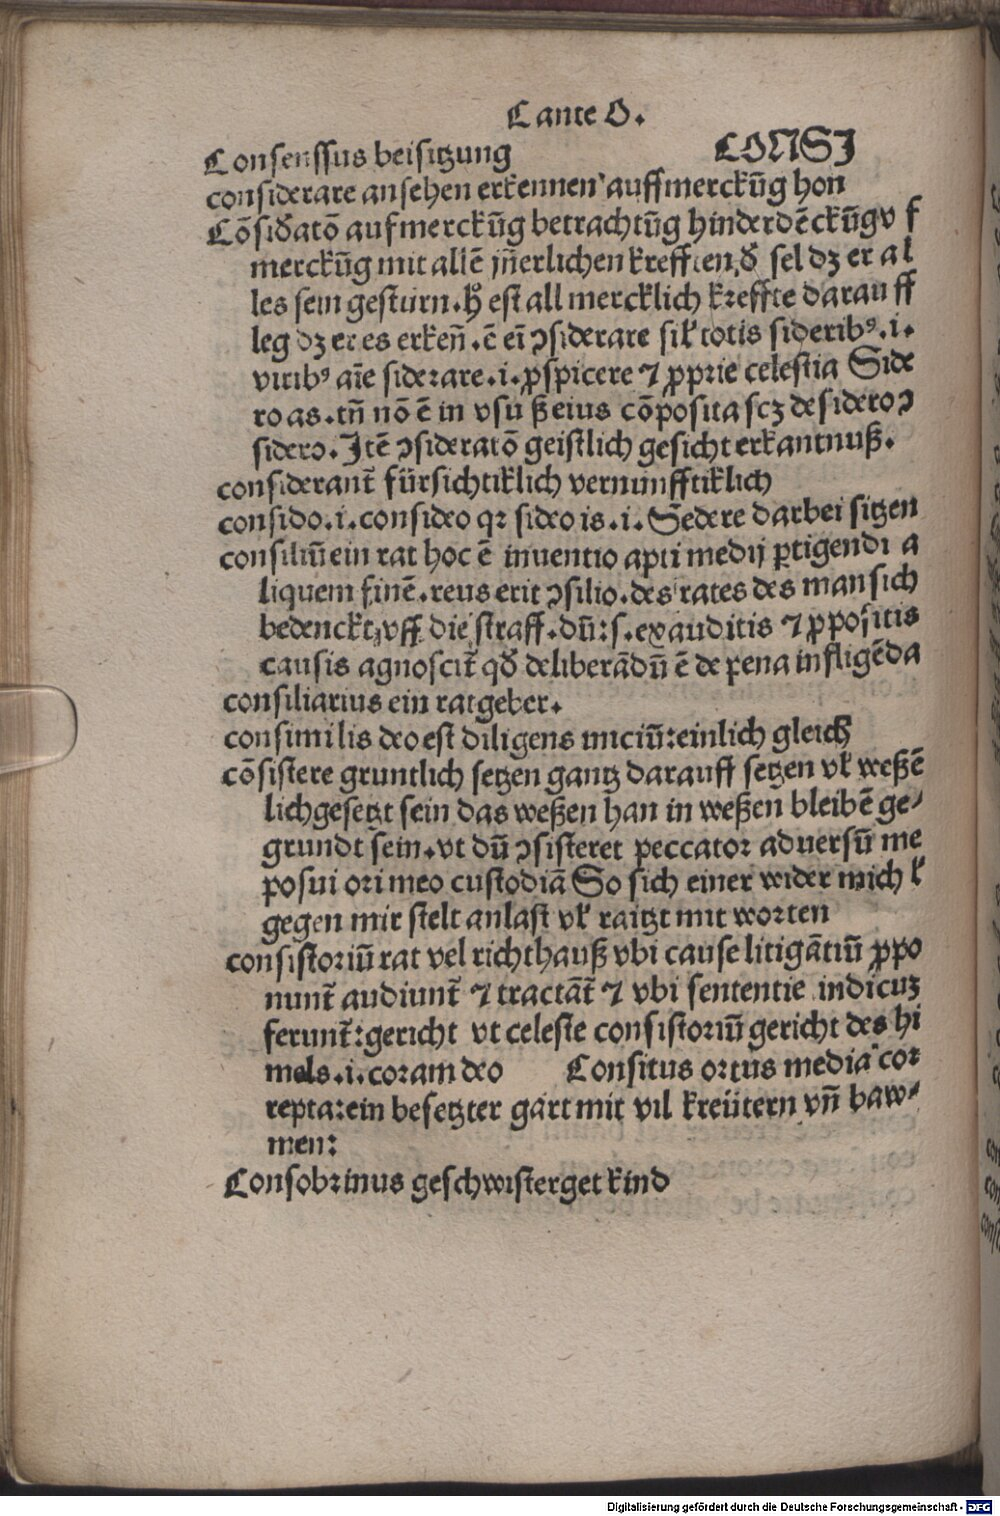 C ante O.
Consenssus beisitzung CONSI
considerare ansehen erkennen auffmerckūg hon
Cōsiđatō aufmerckūg betrachtūg hinderdēckūgv f
merckūg mit allē jn̄erlichen krefften,đ sel dz er al
les sein gesturn.ℏ est all mercklich kreffte darauff
leg dz er es erken̄.ē eī ↄsiderare siƚ totis sideribꝰ.i.
viribꝰ aīe siderare.i.ꝓspicere ⁊ ꝓprie celestia Side
ro as.tn̄ nō ē in vsu ß eius cōposita scz desidero ↄ
sidero.Itē ↄsideratō geistlich gesicht erkantnuß.
considerant̄ fürsichtiklich vernunfftiklich
consido.i.consideo qꝛ sideo is.i.Sedere darbei sitzen
consiliū ein rat hoc ē inuentio apti medij ꝑtigendi a
liquem finē.reus erit ↄsilio.des rates des man sich
bedenckt,vff die straff.dū:s.exauditis ⁊ ꝓpositis
causis agnoscit̄ qđ deliberādū ē de pena infligēda
consiliarius ein ratgeber.
consimilis deo est diligens iniciū:einlich gleich
cōsistere gruntlich setzen gantz darauff setzen vƚ weßē
lichgesetzt sein das weßen han in weßen bleibē ge⸗
grundt sein.vt dū ↄsisteret peccator aduersū me
posui ori meo custodiā So sich einer wider mich ƚ
gegen mir stelt anlast vƚ raitzt mit worten
consistoriū rat vel richthauß vbi cause litigātiū ꝓpo
nunt̄ audiunt̄ ⁊ tractāt̄ ⁊ vbi sententie indicuz
ferunt̄:gericht vt celeste consistoriū gericht des hi
mels.i.coram deo Consitus ortus media cor
repta:ein besetzter gart mit vil kreütern vn̄ baw⸗
men:
Consobrinus geschwisterget kind
Digitalisierung gefördert durch die Deutsche Forschungsgemeinschaft - DFG